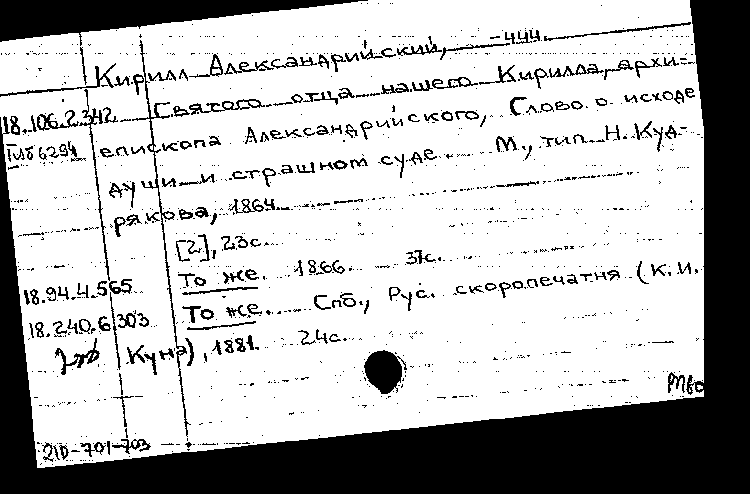 Кирилл Александрийский, -444.
18.106.2.342 Святого отца нашего Кирилла, архи-
епископа Александрийского, Слово о исходе
души и страшном суде. М., тип. Н. Куд-
рякова, 1864
[2], 23с.
18.94.4.565 То же. 1866. 37с.
18.240.6.303 То же. Спб., Рус. скоропечатня (К.И.
Кунэ), 1881. 24с.
210-701-703